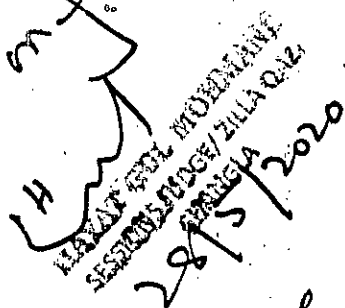 HAYAT GUL MOHMAND
SESSIONS JUDGE/ ZILLA QAZI
SHANGLA
28/5/2020